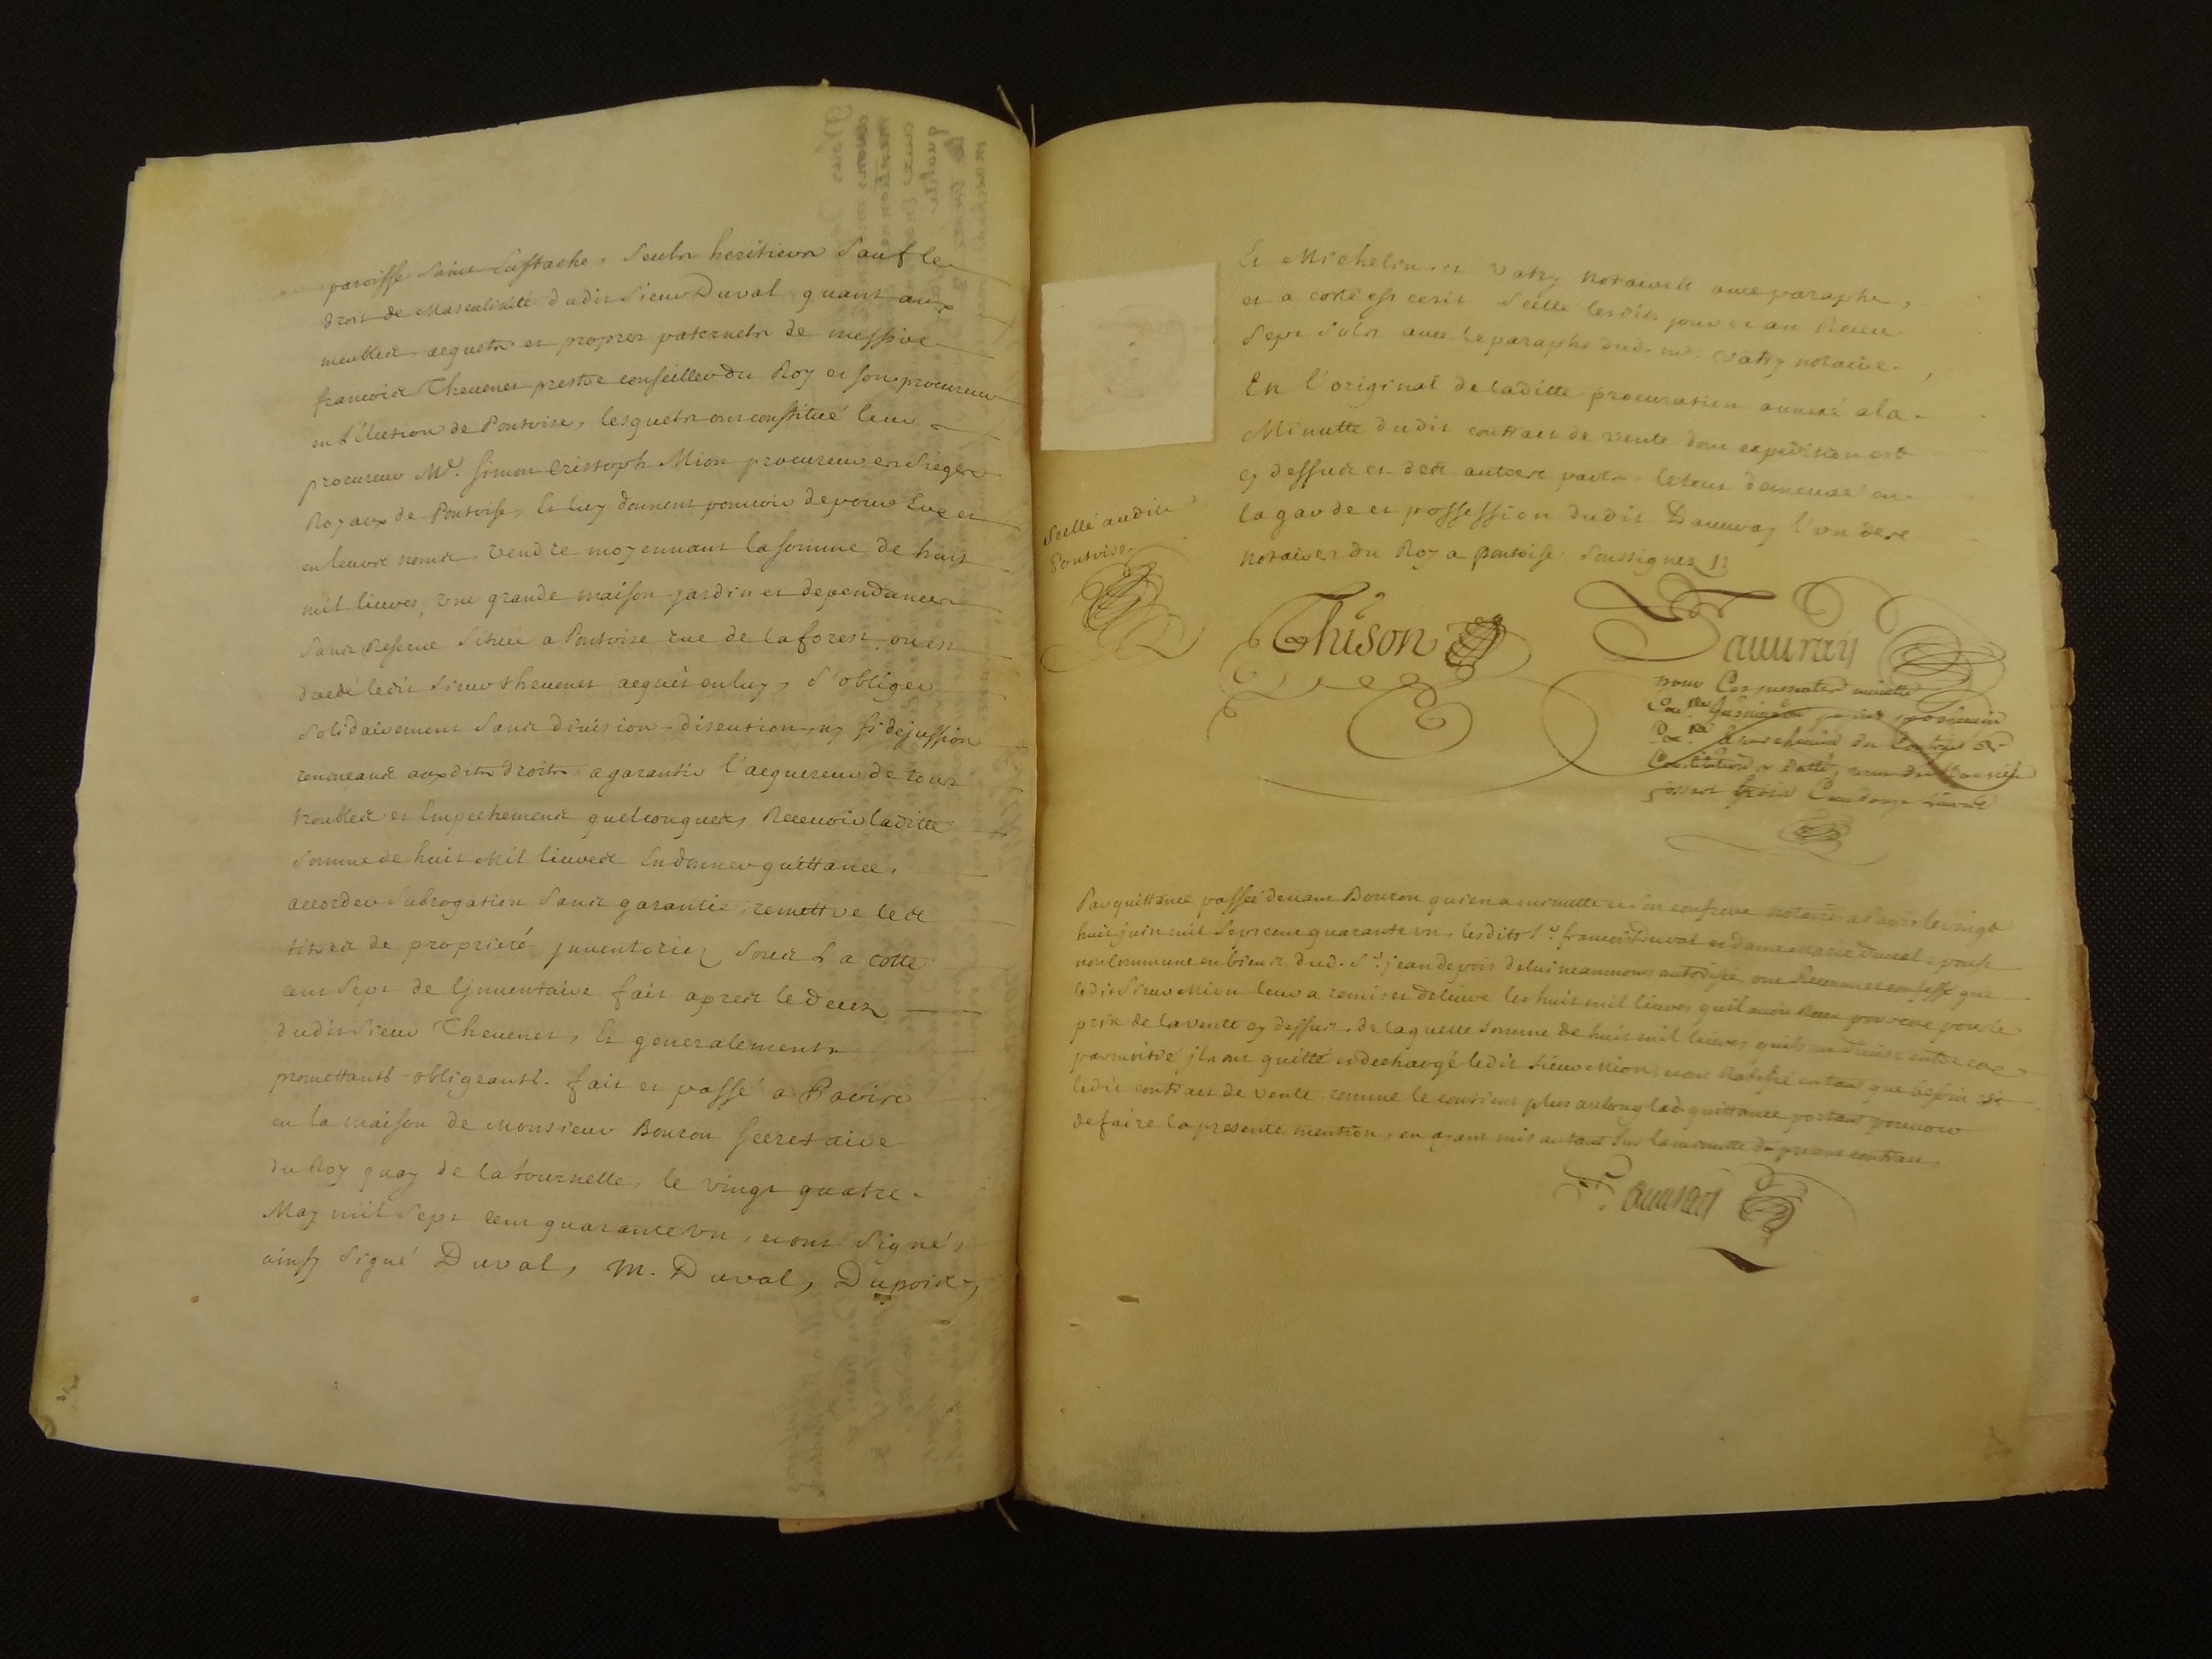 paroisse Saint Eustache, Seuls heritiers Sauf le
droit de Masculinité dudit Sieur Duval quant aux
meubles acquets et propres paternels de messire
francois Thevenet prestre conseiller du Roy et son procureur
en l'Election de Pontoise, lesquels ont constitué leur
procureur Me. Simon Cristoph Mion procureur es Sieges
Royaux de Pontoise, Et luy donnent pouvoir de pour Eux et
en leurs noms, vendre moyennant la somme de huit
mil livres, une grande maison jardin et dependances
Sans Reserve Situee a Pontoise rue de la forest, ou est
decedé ledit Sieur thevenet acquis en luy, S'obliger
Solidairement Sans division discution ny fidejussion
renoncans auxdits droits, a garantir l'acquereur de tous
troubles et Empechemens quelconques, Recevoir laditte
Somme de huit Mil livres En donner quittance,
accorder Subrogation Sans garantie, remettre les
titres de propriété jnventoriez Sous La cotte
cent Sept de l'jnventaire fait apres le deces
dudit Sieur Thevenet, Et generalement
promettant obligeant. fait et passé a Paris
en la maison de Monsieur Bouron Secretaire
du Roy quay de la tournelle, le vingt quatre
May mil Sept cent quarante un, et ont Signé,
ainsy Signé Duval, M. Duval, Dupois,
Et Michelin et vatry Notaires avec paraphe,
et a costé est ecrit Scellé lesdits jour et an Receu
Sept Sols avec le paraphe dud. me. Vatry notaire.
En l'original de laditte procuration annexé a la
Minutte dudit contract de vente dont expedition est
cy dessus et des autres parts, le tout demeuré en
la garde et possession dudit Dauvray l'un des
notaires du Roy a pontoise Soussignez
Scellé audit
Pontoise
Thison Dauvray
pour Controlle minutte
Par quittance passée devant Bouron qui en a minutte et Son confrere notaires a Paris le vingt
huit juin mil Sept cent quarante un, lesdits Sr. francois Duval et dame Marie Duval epouse
non Commune en biens dud. Sr. jean depois de lui neanmoins autorisée ont Reconnu et confessé que
ledit Sieur Mion leur a remis et delivré les huit mil livres quil avoit Receu pour eux pour le
prix de la vente cy dessus, de laquelle Somme de huit mil livres quils ont divisé entre eux
par moitié jls ont quitté et dechargé ledit Sieur Mion, et ont Ratifié en tant que besoin est
ledit contract de vente comme le contient plus au long lad. quittance portant pouvoir
de faire la presente mention, en ayant mis autant Sur la minutte du present contract,
Dauvray